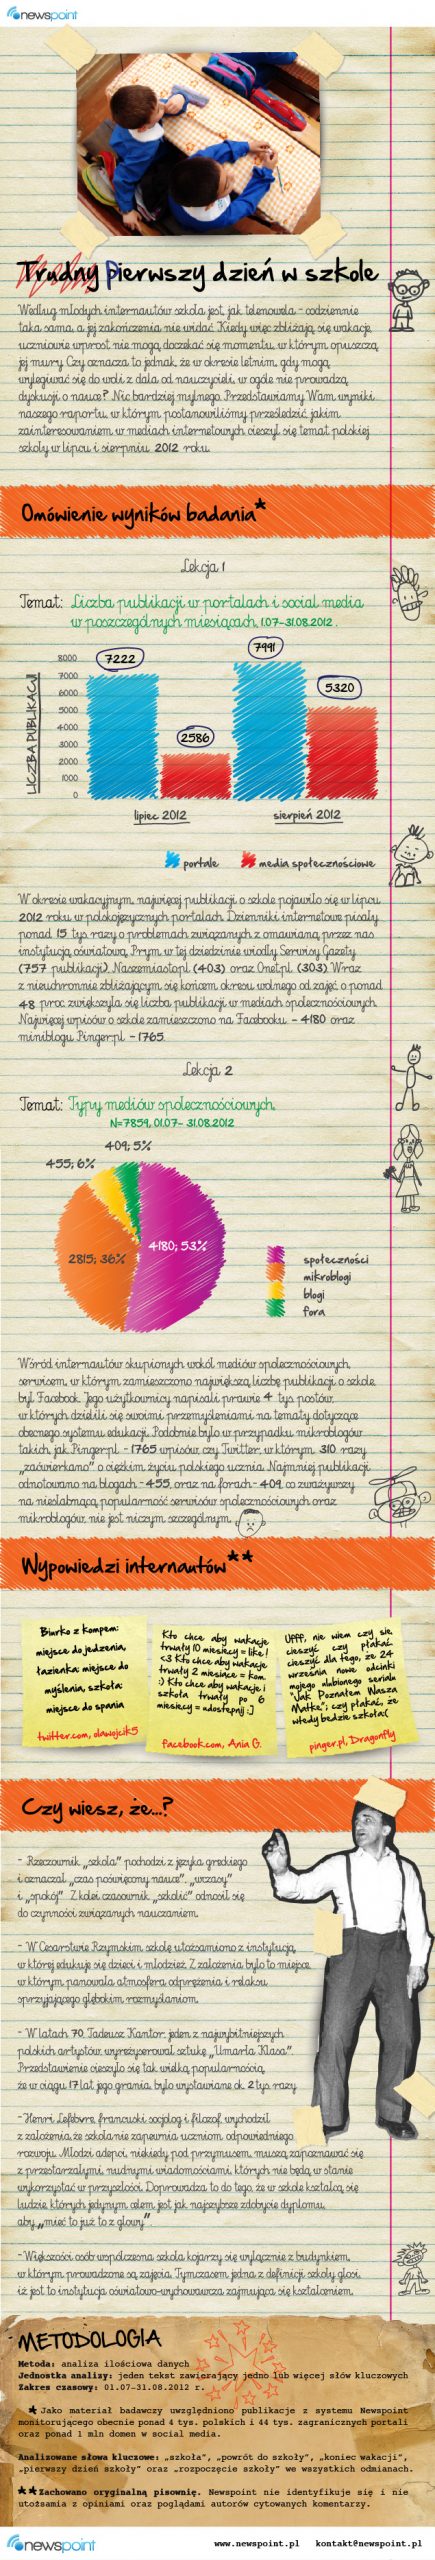 newspoint
Trudny pierwszy dzień w szkole
Według młodych internautów szkoła jest jak telenowela - codziennie
taka sama, a jej zakończenia nie widać. Kiedy więc zbliżają się wakacje,
uczniowie wprost nie mogą doczekać się momentu, w którym opuszczą
jej mury. Czy oznacza to jednak, że w okresie letnim, gdy mogą
wylegiwać się do woli z dala od nauczycieli, w ogóle nie prowadzą
dyskusji o nauce? Nic bardziej mylnego. Przedstawiamy Wam wyniki
naszego raportu, w którym postanowiliśmy prześledzić jakim
zainteresowaniem w mediach internetowych cieszył się temat polskiej
szkoły w lipcu i sierpniu 2012 roku.
Omówienie wyników badania*
Lekcja 1
Temat: Liczba publikacji w portalach i social media
w poszczególnych miesiącach, 1.07-31.08.2012.
LICZBA PUBLIKACJI
8000
7000
6000
5000
4000
3000
2000
1000
0
7222
2586
7991
5320
lipiec 2012
sierpień 2012
portale
media społecznościowe
W okresie wakacyjnym, najwięcej publikacji o szkole pojawiło się w lipcu
2012 roku w polskojęzycznych portalach. Dzienniki internetowe pisały
ponad 15 tys razy o problemach związanych z omawianą przez nas
instytucją oświatową. Prym w tej dziedzinie wiodły Serwisy Gazety
(757 publikacji), Naszemiasto.pl (403) oraz Onet.pl (303). Wraz
z nieuchronnie zbliżającym się końcem okresu wolnego od zajęć o ponad
48 proc. zwiększyła się liczba publikacji w mediach społecznościowych.
Najwięcej wpisów o szkole zamieszczono na Facebooku - 4180 oraz
miniblogu Pinger.pl - 1765.
Lekcja 2
Temat: Typy mediów społecznościowych,
N=7859, 01.07- 31.08.2012
409; 5%
455; 6%
2815; 36%
4180; 53%
społeczności
mikroblogi
blogi
fora
Wśród internautów skupionych wokół mediów społecznościowych,
serwisem, w którym zamieszczono największą liczbę publikacji o szkole,
był Facebook. Jego użytkownicy napisali prawie 4 tys. postów,
w których dzielili się swoimi przemyśleniami na tematy dotyczące
obecnego systemu edukacji. Podobnie było w przypadku mikroblogów
takich, jak Pinger.pl - 1765 wpisów, czy Twitter, w którym 310 razy
„zaćwierkano” o ciężkim życiu polskiego ucznia. Najmniej publikacji
odnotowano na blogach - 455, oraz na forach - 409, co zważywszy
na niesłabnącą popularność serwisów społecznościowych oraz
mikroblogów, nie jest niczym szczególnym.
Wypowiedzi internautów**
Biurko z kompem:
miejsce do jedzenia,
łazienka: miejsce do
myślenia, szkoła:
miejsce do spania
twitter.com, olawojcik5
Kto chce aby wakacje
trwały 10 miesięcy = like !
<3 Kto chce aby wakacje
trwały 2 miesiące = kom.
:) Kto chce aby wakacje i
szkoła trwały po 6
miesięcy = udostępnij ;]
facebook.com, Ania G.
Ufff, nie wiem czy się
cieszyć czy płakać.
cieszyć dla tego, że 24
września nowe odcinki
mojego ulubionego serialu
"Jak Poznałem Waszą
Matkę"; czy płakać, że
wtedy będzie szkoła:(
pinger.pl, Dragonfly
Czy wiesz, że...?
- Rzeczownik „szkoła” pochodzi z języka greckiego
i oznaczał „czas poświęcony nauce”, „wczasy”
i „spokój”. Z kolei czasownik „szkolić” odnosił się
do czynności związanych nauczaniem.
- W Cesarstwie Rzymskim szkołę utożsamiono z instytucją,
w której edukuje się dzieci i młodzież. Z założenia było to miejsce,
w którym panowała atmosfera odprężenia i relaksu
sprzyjającego głębokim rozmyślaniom.
- W latach 70. Tadeusz Kantor, jeden z najwybitniejszych
polskich artystów, wyreżyserował sztukę „Umarła Klasa”.
Przedstawienie cieszyło się tak wielką popularnością,
że w ciągu 17 lat jego grania, było wystawiane ok. 2 tys. razy.
- Henri Lefebvre, francuski socjolog i filozof, wychodził
z założenia, że szkoła nie zapewnia uczniom odpowiedniego
rozwoju. Młodzi adepci, niekiedy pod przymusem, muszą zapoznawać się
z przestarzałymi, nudnymi wiadomościami, których nie będą w stanie
wykorzystać w przyszłości. Doprowadza to do tego, że w szkole kształcą się
ludzie, których jedynym celem jest jak najszybsze zdobycie dyplomu,
aby „mieć to już to z głowy”
- Większości osób współczesna szkoła kojarzy się wyłącznie z budynkiem,
w którym prowadzone są zajęcia. Tymczasem jedna z definicji szkoły głosi,
iż jest to instytucja oświatowo-wychowawcza zajmująca się kształceniem.
METODOLOGIA
Metoda: analiza ilościowa danych
Jednostka analizy: jeden tekst zawierający jedno lub więcej słów kluczowych
Zakres czasowy: 01.07-31.08.2012 r.
* Jako materiał badawczy uwzględniono publikacje z systemu Newspoint
monitorującego obecnie ponad 4 tys. polskich i 44 tys. zagranicznych portali
oraz ponad 1 mln domen w social media.
Analizowane słowa kluczowe: „szkoła”, „powrót do szkoły”, „koniec wakacji”,
„pierwszy dzień szkoły” oraz „rozpoczęcie szkoły” we wszystkich odmianach.
**Zachowano oryginalną pisownię. Newspoint nie identyfikuje się i nie
utożsamia z opiniami oraz poglądami autorów cytowanych komentarzy.
newspoint
www.newspoint.pl kontakt@newspoint.pl